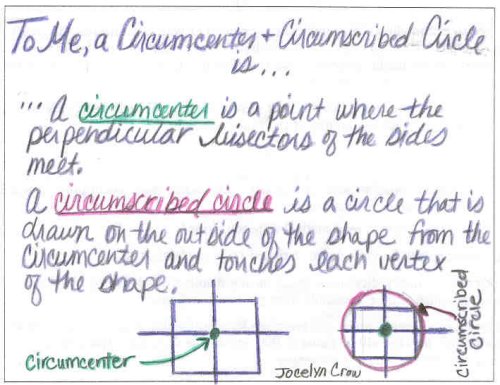 To Me, a Circumcenter + Circumscribed Circle
is...
... A circumcenter is a point where the
perpendicular bisectors of the sides
meet.
A circumscribed circle is a circle that is
drawn on the outside of the shape from the
circumcenter and touches each vertex
of the shape.
circumcenter
Jocelyn Crow
circumscribed
circle